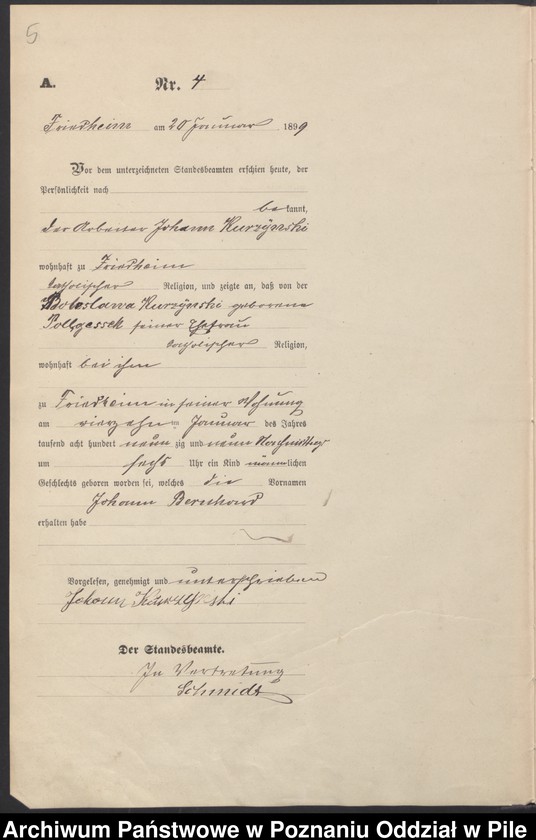 5
A. Nr. 4
Friedheim am 20 Januar 1899
Vor dem unterzeichneten Standesbeamten erschien heute, der
Persönlichkeit nach
bekannt,
der Arbeiter Johann Kurzÿnski
wohnhaft zu Friedheim
katholischer Religion, und zeigte an, daß von der
Boleslawa Kurzÿnski geborene
seiner Ehefrau
katholischer Religion,
wohnhaft bei ihm
zu Friedheim in seiner Wohnung
am vierzehn ten Januar des Jahres
tausend acht hundert neun zig und neun Nachmittags
um sechs Uhr ein Kind männlichen
Geschlechts geboren worden sei, welches die Vornamen
Johann Bernhard
erhalten habe
Vorgelesen, genehmigt und unterschrieben
Johann Kurzÿnski
Der Standesbeamte.
In Vertretung
Schmidt
Archiwum Państwowe w Poznaniu Oddział w Pile